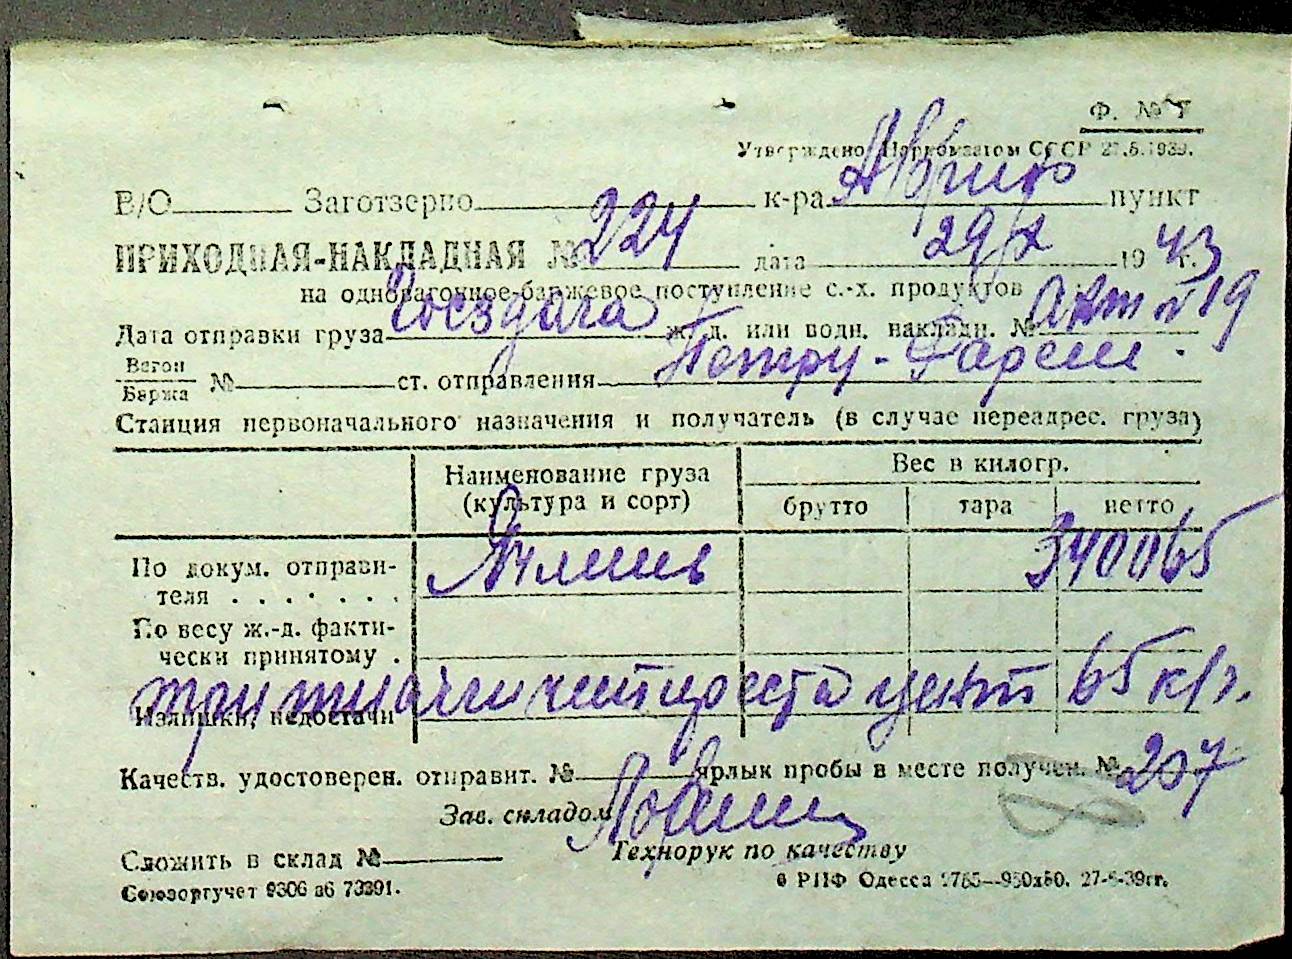 Ф. № 7
Утверждено Наркомзагом СССР 27.6.1939.
В/О Заготзерно к-ра пункт
ПРИХОДНАЯ-НАКЛАДНАЯ № 224 дата 29/X 1943 г.
на одновагочное-баржевое поступление с.-х. продуктов
Дата отправки груза ж. д. или водн. накладн. № акт № 19
Вагон
Баржа № ст. отправления Петру-
Станция первоначального назначения и получатель (в случае переадрес. груза)
Наименование груза (культура и сорт) Вес в килогр.
брутто тара нетто
По докум. отправи-
теля . . . . . . . Ячмень 340065
По весу ж.-д. факти-
чески принятому .
три тысячи четыреста цент 65 к/г.
Излишки, недостачи
Качеств. удостоверен. отправит. № ярлык пробы в месте получен. № 207
Зав. складом
Технорук по качеству
Сложить в склад №
Союзоргучет 9306 з6 73391.
6 РПФ Одесса 2765—950х50. 27-6-39гг.